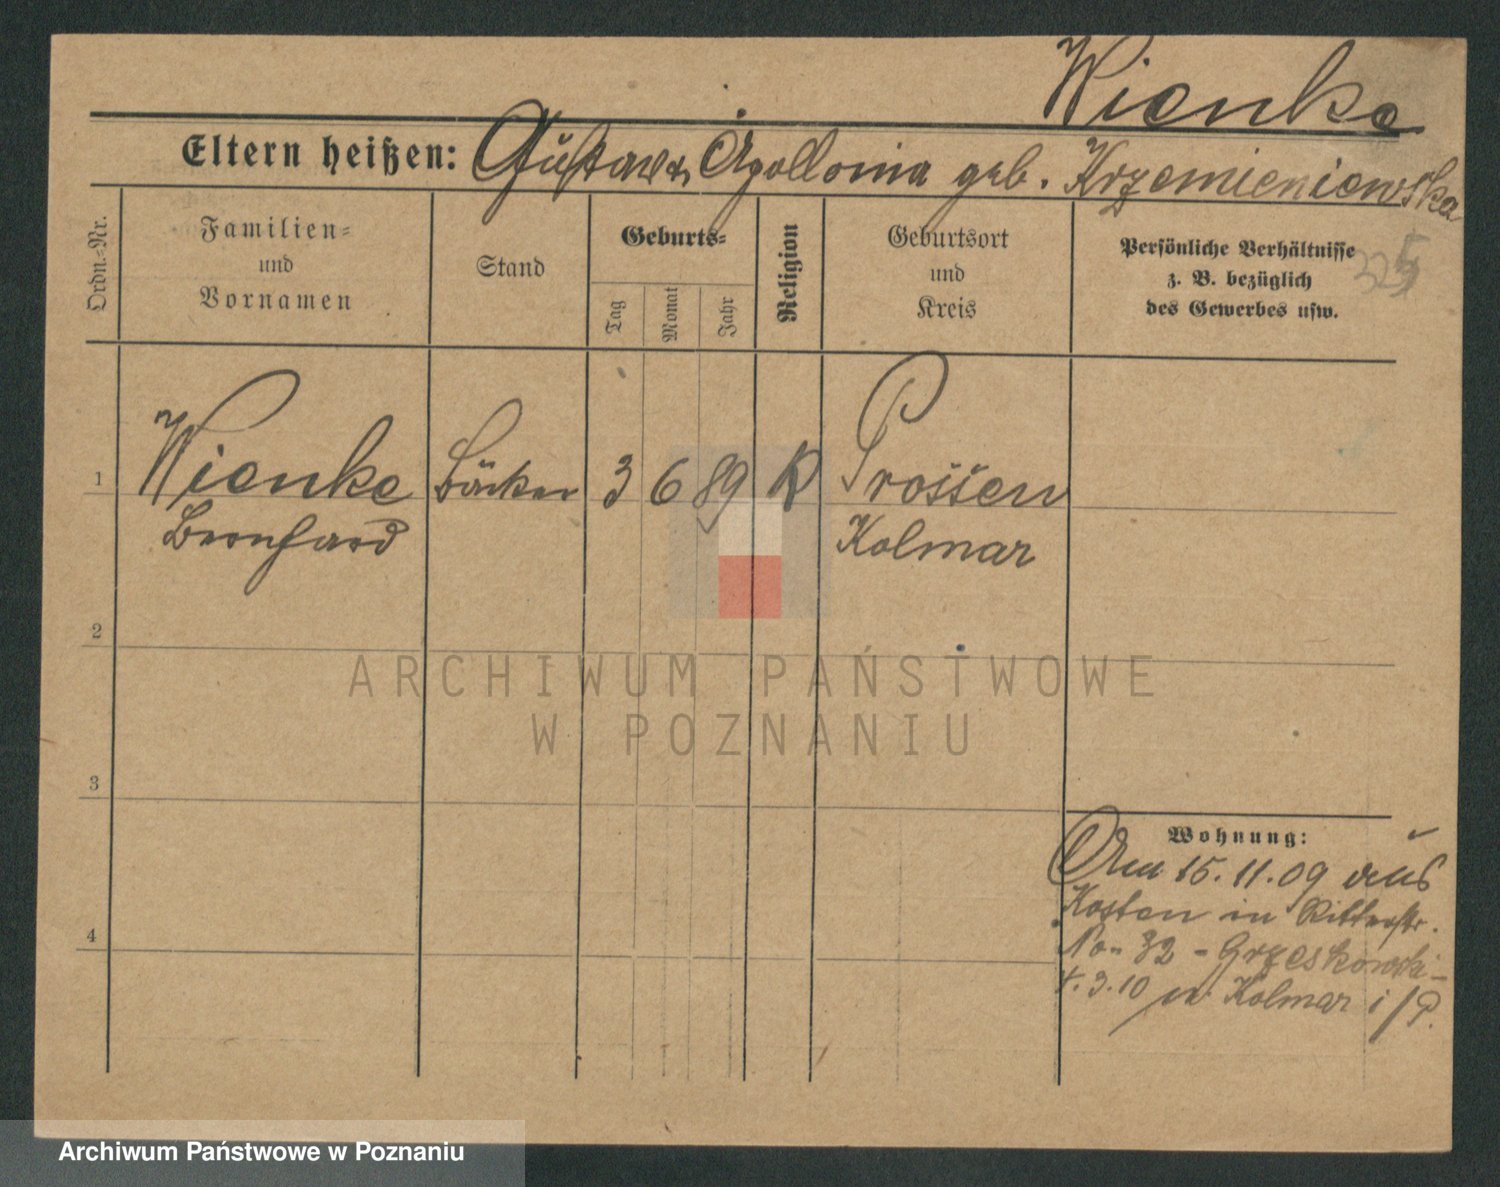 Wienke
Eltern heißen: Gustav u. Apollonia geb. Krzemieniewska
Ordn.-Nr.
Familien-
und
Vornamen
Stand
Geburts-
Tag
Monat
Jahr
Religion
Geburtsort
und
Kreis
Persönliche Verhältnisse
z. B. bezüglich
des Gewerbes usw.
325
1 Wienke Bäcker 3 6 89 K Prossen
Bernhard Kolmar
2
3
4
Wohnung:
Am 15.11.09 aus
Kosten in Ritterstr.
No. 32 - Grzeskowski -
3.10 Kolmar i/P.
ARCHIWUM PAŃSTWOWE
W POZNANIU
Archiwum Państwowe w Poznaniu